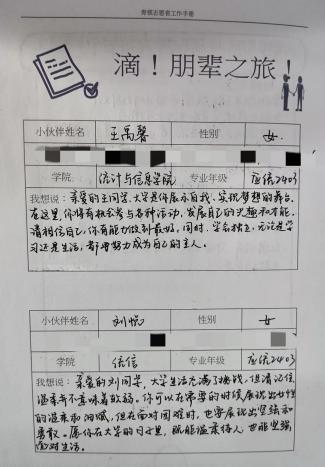 青媒志愿者工作手册
滴！朋辈之旅！
小伙伴姓名 王禹馨 性别 女.
学院 统计与信息学院 专业年级 应统2403
我想说：亲爱的王同学，大学是你展示自我、实现梦想的舞台.
在这里，你将有机会参与各种活动，发展自己的兴趣和才能.
请相信自己，你有能力做到最好，同时，学会独立，无论是学
习还是生活，都要努力成为自己的主人。
小伙伴姓名 刘悦 性别 女
学院 统信 专业年级 应统2403
我想说：亲爱的刘同学，大学生活充满了挑战，但请记住
温柔并不意味着软弱。你可以在需要的时候展现出女性
的温柔和细腻，但在面对困难时，也要展现出坚强和
勇敢。愿你在大学的日子里，既能温柔待人，也能坚强
面对生活。